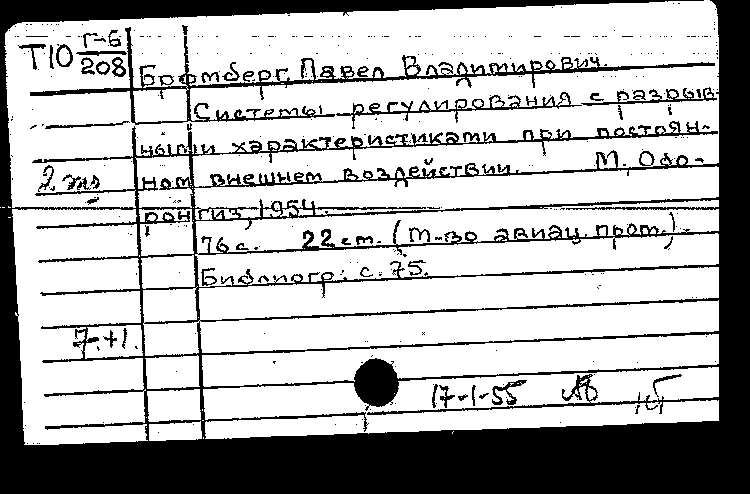 Т10 Г-6
208
Бромберг, Павел Владимирович.
Системы регулирования с разрыв-
ными характеристиками при постоян-
2 экз
ном внешнем воздействии. М, Обо-
ронгиз, 1954.
76 с. 22 см. (М-во авиац. пром.) -
Библиогр: с. 75.
7-+1.
17-1-55